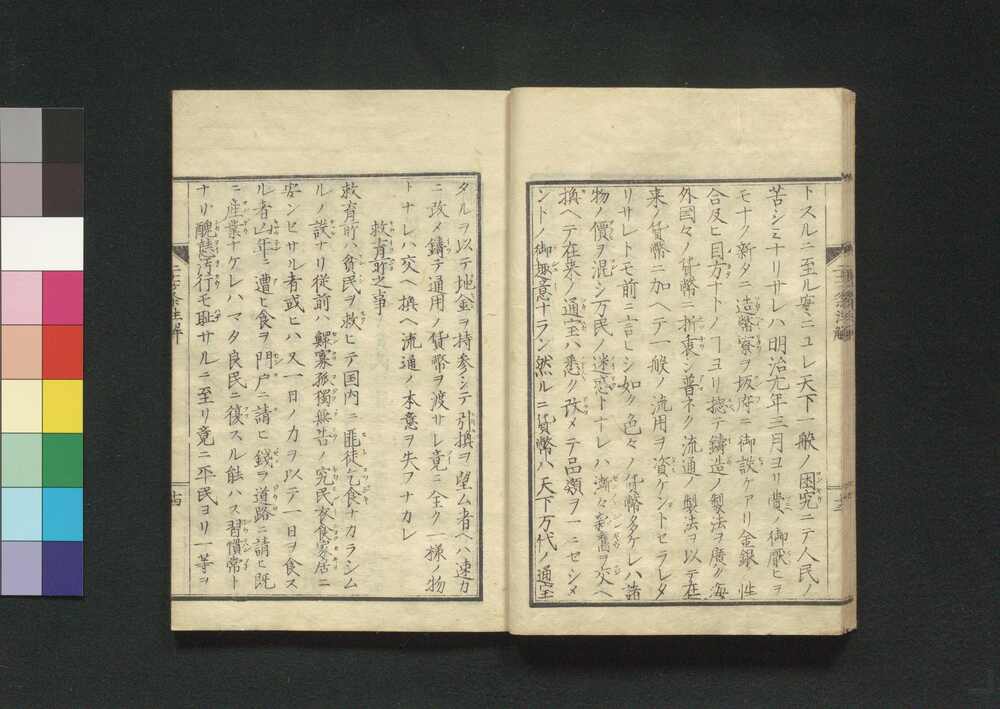 トスルニ至ル実ニユレ天下一般ノ困究ニテ人民ノ
苦シミナリサレハ明治元年三月ヨリ費ノ御厭ヒヲ
モナク新タニ造幣寮ヲ坂府ニ御設ケアリ金銀ノ性
合及ヒ目方ナトノヿヨリ捴テ鑄造ノ製法ヲ廣ク海
外国々ノ貨幣ニ折衷シ普ネク流通ノ製法ヲ以テ在
来ノ貨幣ニ加ヘテ一般ノ流用ヲ資ケントセラレタ
リサレトモ前ニ言ヒシ如ク色々ノ貨幣多ケレハ諸
物ノ價ヲ混シ万民ノ迷惑トナレハ漸々新舊ヲ交ヘ
換ヘテ在来ノ通宝ハ悉ク改メテ品類ヲ一ニセシメ
ントノ御趣意ナラン然ルニ貨幣ハ天下万代ノ通宝
タルヲ以テ地金ヲ持参シテ引換ヲ望ム者ヘハ速カ
ニ改メ鑄テ通用ノ貨幣ヲ渡サレ竟ニ全ク一様ノ物
トナレハ交ヘ換ヘ流通ノ本意ヲ失フナカレ
救育所之事
救育所ハ貧民ヲ救ヒテ国内ニ匪徒乞食ナカラシム
ルノ設ナリ従前ハ鰥寡孤獨無告ノ究民衣食家居ニ
安ンセサル者或ヒハ又一日ノ力ヲ以テ一日ヲ食ス
ル者凶年ニ遭ヒ食ヲ門戸ニ請ヒ錢ヲ道路ニ請ヒ既
ニ産業ナケレハマタ良民ニ復スル能ハス習慣常ト
ナリ醜慝汚行モ耻サルニ至リ竟ニ平民ヨリ一等ヲ